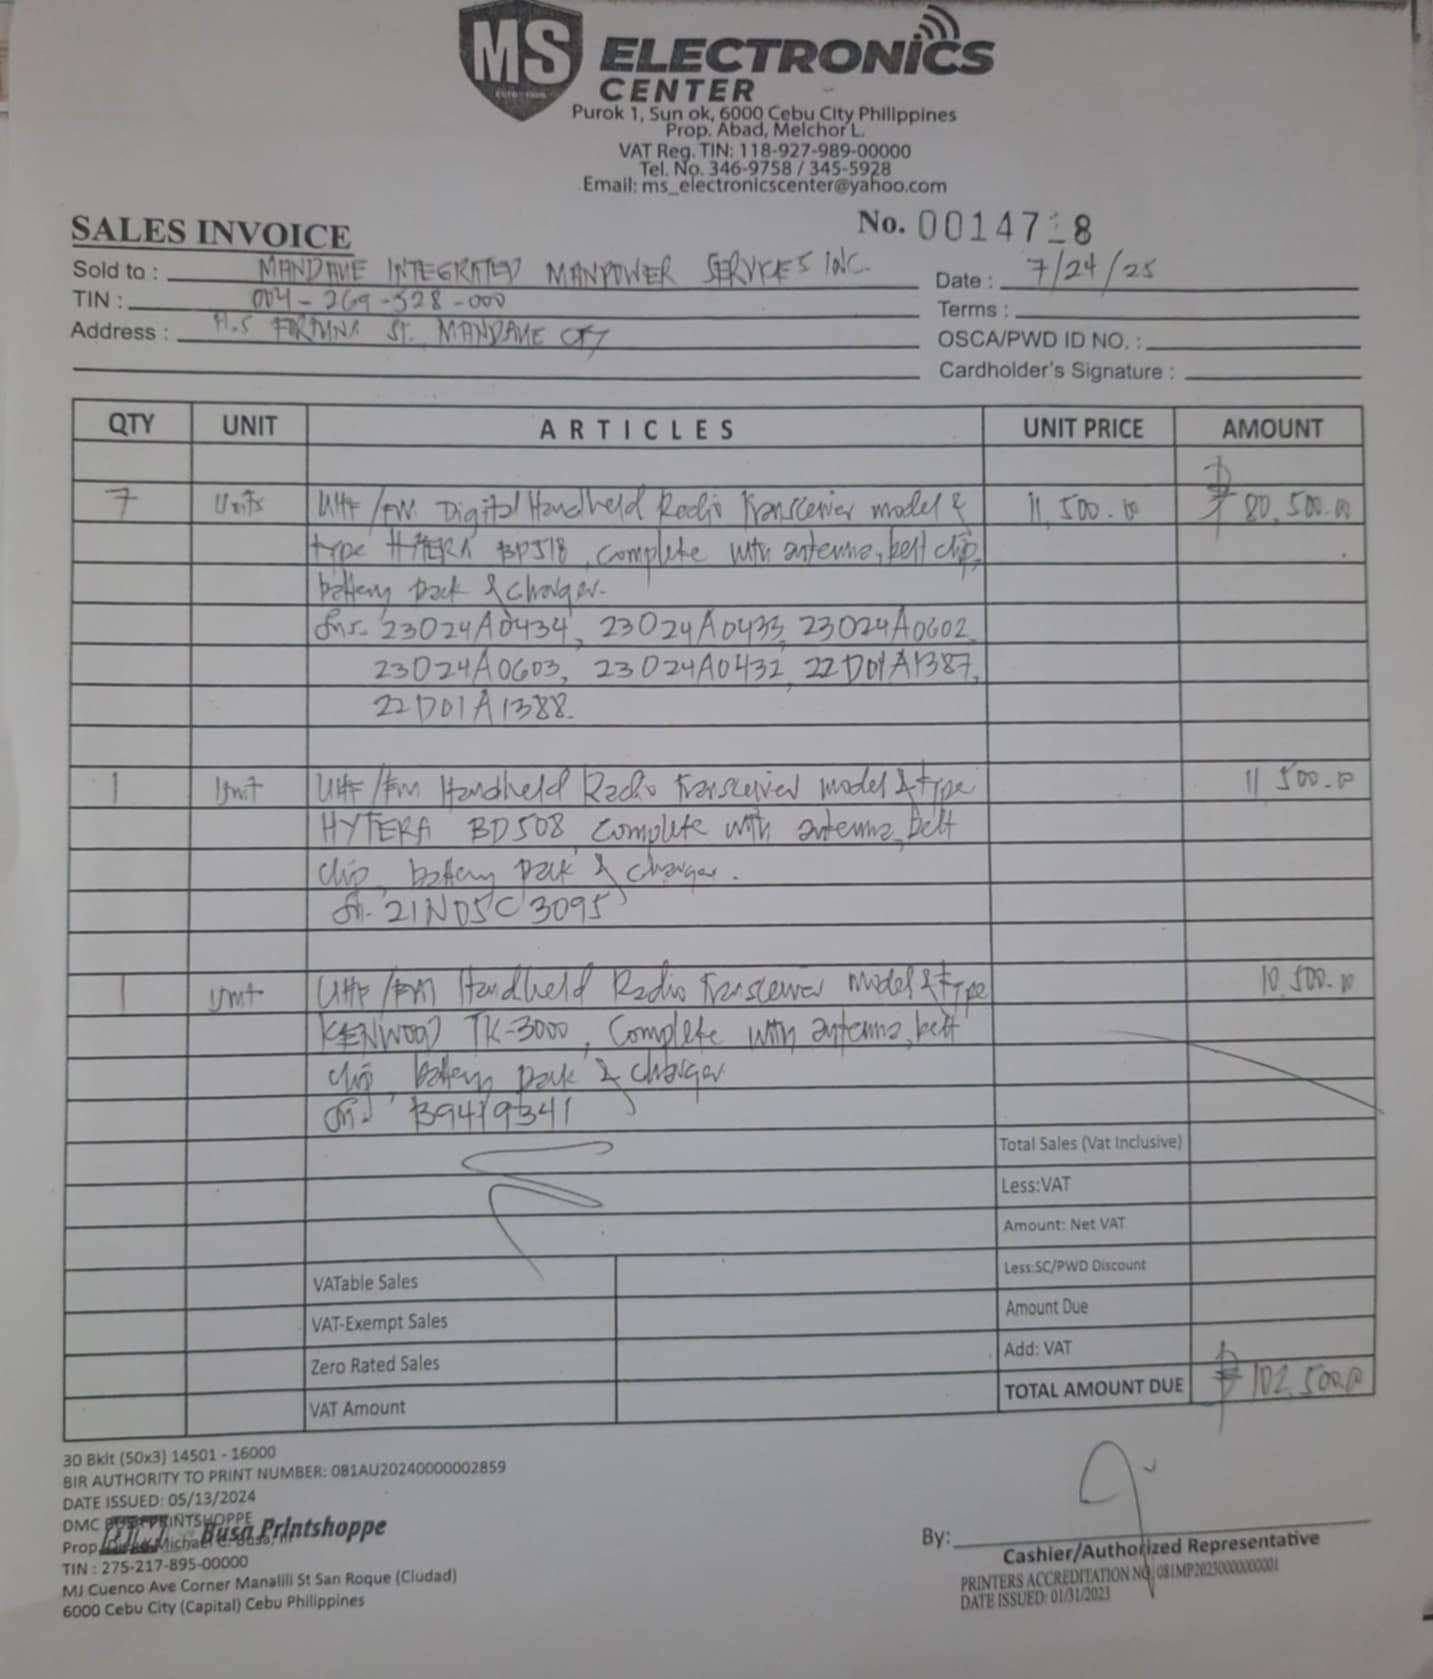 MS ELECTRONICS
CENTER
Purok 1, Sun ok, 6000 Cebu City Philippines
Prop. Abad, Melchor L.
VAT Reg. TIN: 118-927-989-00000
Tel. No. 346-9758 / 345-5928
Email: ms_electronicscenter@yahoo.com
SALES INVOICE No. 0014718
Sold to : MANDAUE INTEGRATED MANPOWER SERVICES INC. Date : 7/24/25
TIN : 004-269-528-000 Terms :
Address : A.S FORTUNA ST. MANDAUE CITY OSCA/PWD ID NO. :
Cardholder's Signature :
QTY UNIT ARTICLES UNIT PRICE AMOUNT
7 Units UHF/FM Digital Handheld Radio Transceiver model & 11,500.00 ₱ 80,500.00
type HYTERA BD518, complete with antenna, belt clip,
battery pack & charger.
Sns. 23D24A0434, 23D24A0433, 23D24A0602
23D24A0603, 23D24A0432, 22D01A1387,
22D01A1388.
1 Unit UHF/FM Handheld Radio Transceiver model & type 11,500.00
HYTERA BD508 complete with antenna, belt
clip, battery pack & charger.
Sn. 21N05C3095
1 Unit UHF/FM Handheld Radio Transceiver Model & type 10,500.00
KENWOOD TK-3000, Complete with antenna, belt
clip, battery pack & charger
Sn. B9419341
Total Sales (Vat Inclusive)
Less:VAT
Amount: Net VAT
VATable Sales Less:SC/PWD Discount
VAT-Exempt Sales Amount Due
Zero Rated Sales Add: VAT
VAT Amount TOTAL AMOUNT DUE ₱ 102,500.00
30 Bklt (50x3) 14501 - 16000
BIR AUTHORITY TO PRINT NUMBER: 081AU20240000002859
DATE ISSUED: 05/13/2024
DMC BUSA PRINTSHOPPE
Busa Printshoppe
Prop. Michael C. Busa,
TIN : 275-217-895-00000
MJ Cuenco Ave Corner Manalili St San Roque (Ciudad)
6000 Cebu City (Capital) Cebu Philippines
By:
Cashier/Authorized Representative
PRINTERS ACCREDITATION NO. 081MP20230000000001
DATE ISSUED: 01/31/2023